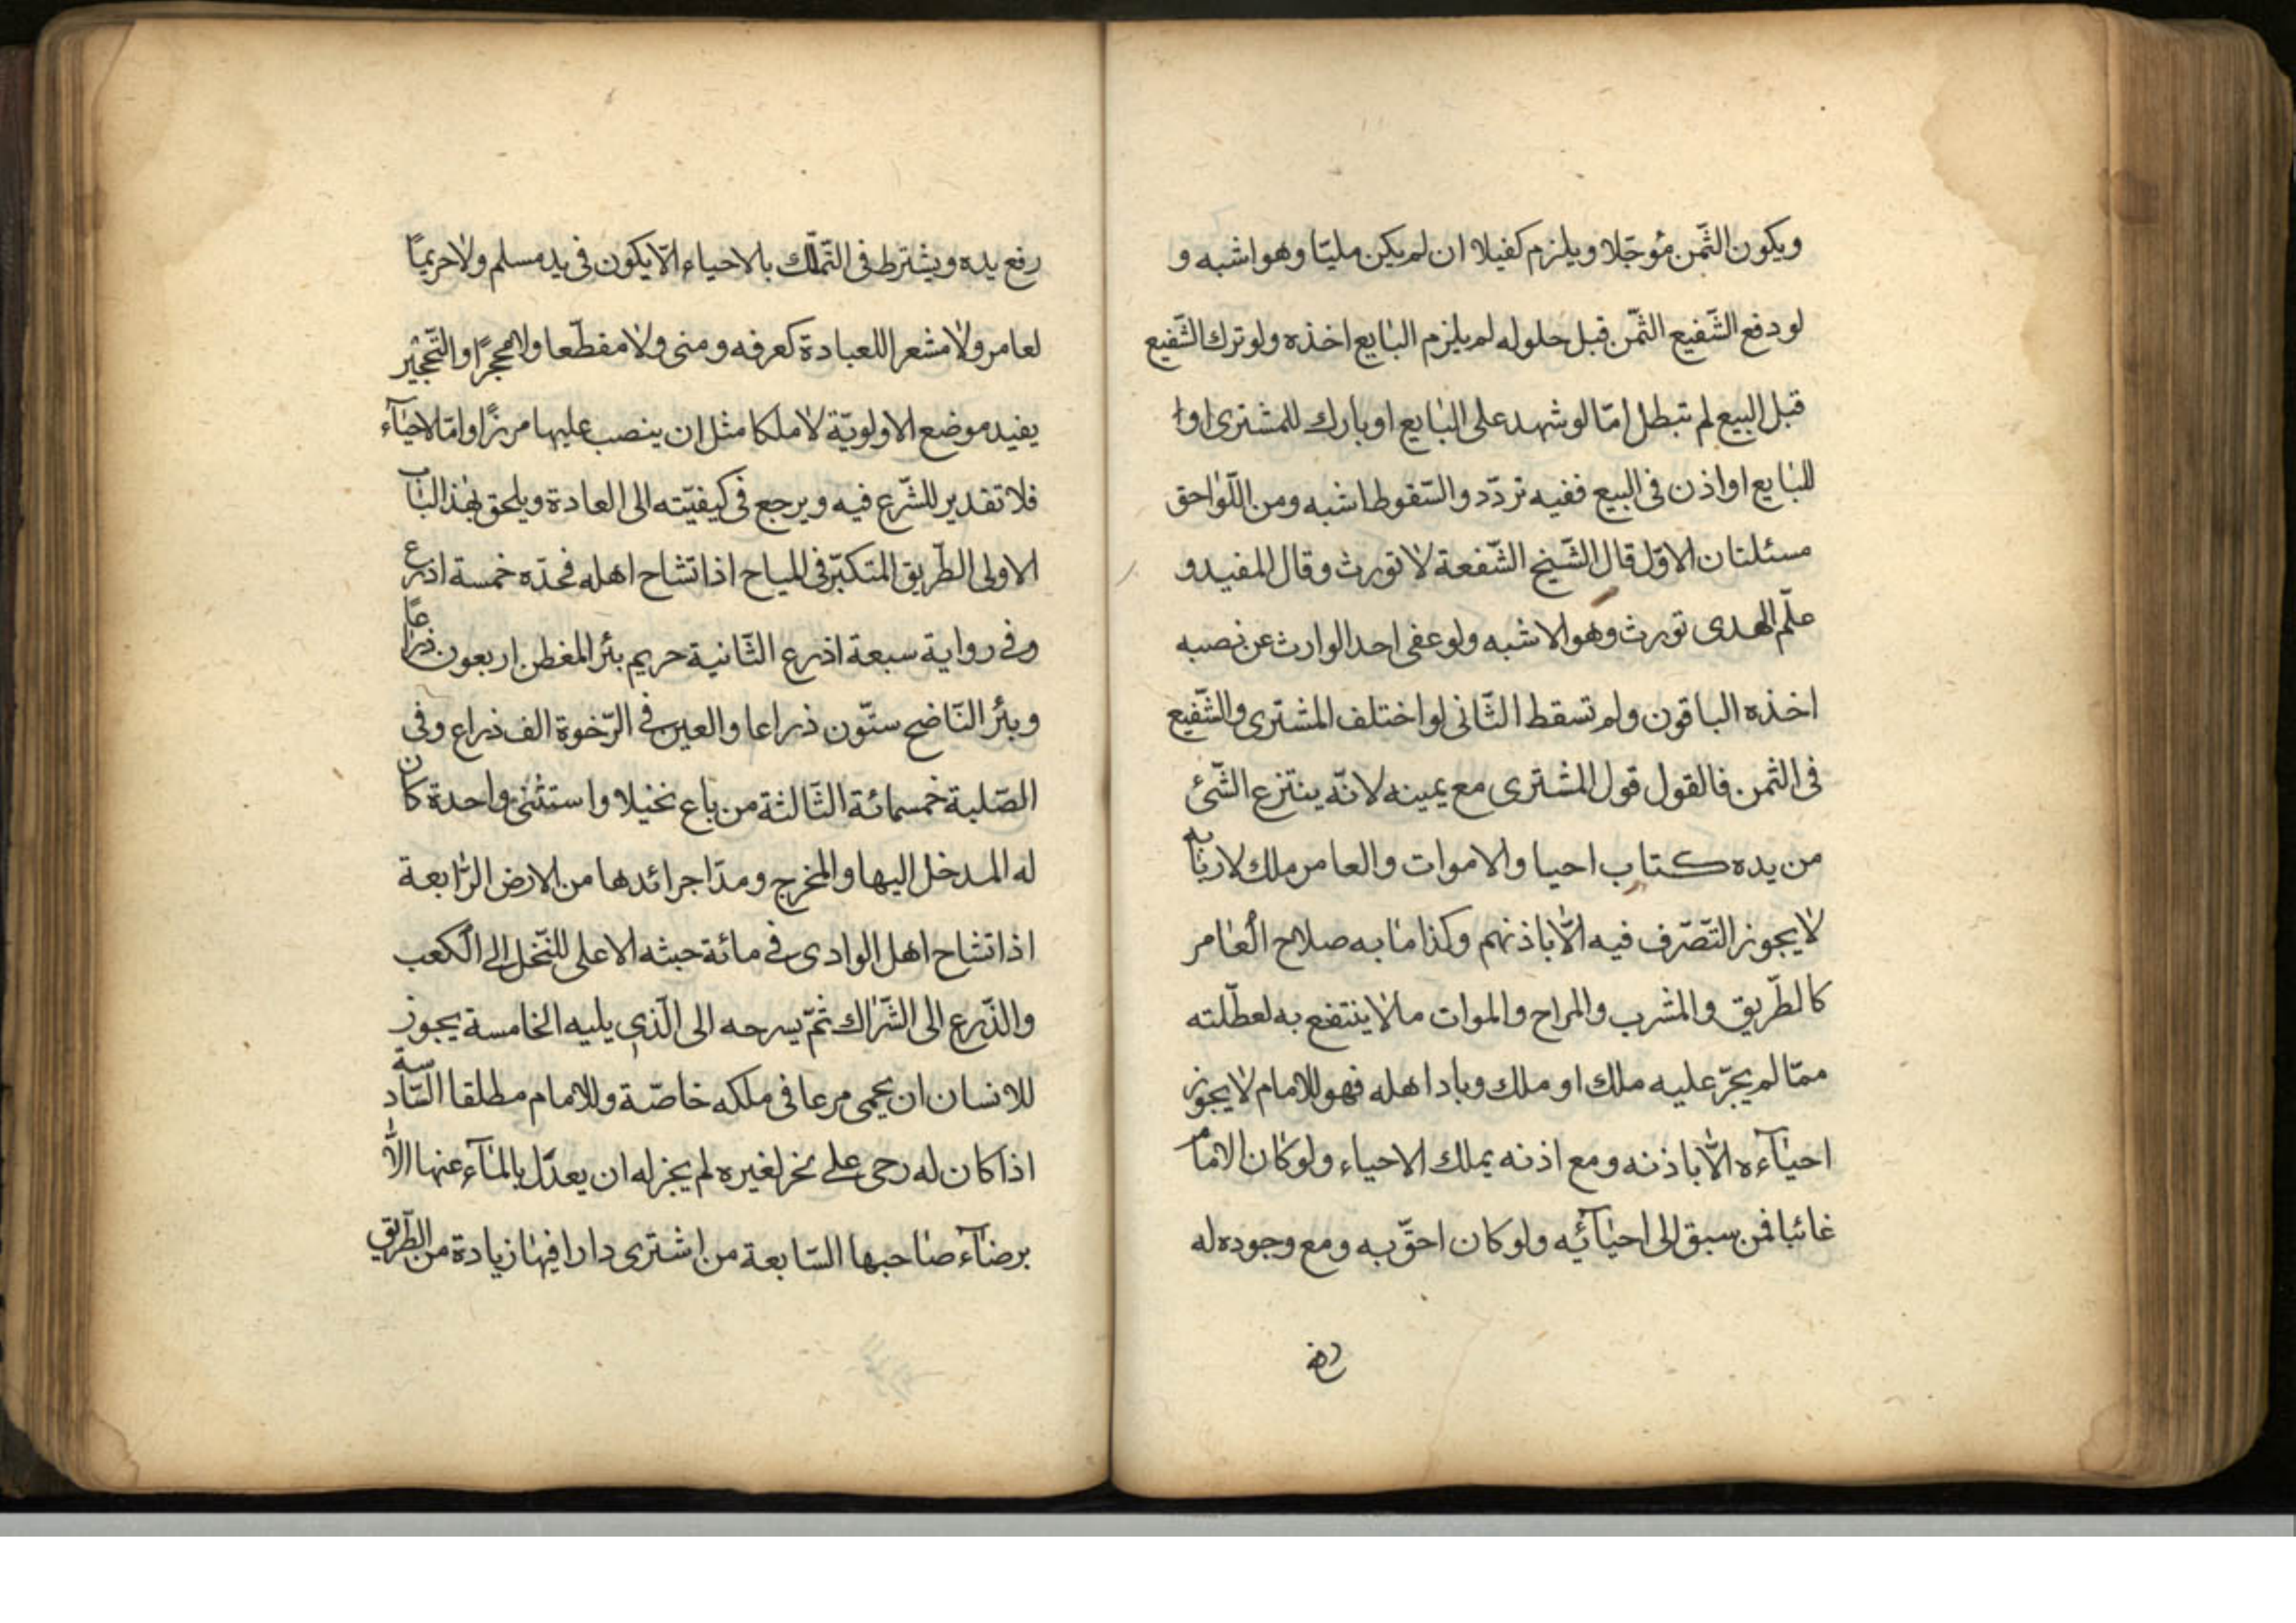 ويكون الثّمن مؤجّلا ويلزم كفيلا ان لم يكن مليّا وهو اشبه و
لو دفع الشّفيع الثّمن قبل حلوله لم يلزم البايع اخذه ولو ترك الشّفيع
قبل البيع لم تبطل امّا لو شهد على البايع او بارك للمشترى او ا
للبايع او اذن فى البيع ففيه تردّد والسّقوط اشبه ومن اللّواحق
مسئلتان الاوّل قال الشّيخ الشّفعة لا تورث وقال المفيد و
علّم الهدى تورث وهو الاشبه ولو عفى احد الوارث عن نصبه
اخذه الباقون ولم تسقط الثّانى لو اختلف المشترى والشّفيع
فى الثمن فالقول قول المشترى مع يمينه لانّه ينتزع الشّئ
من يده كتاب احيا والاموات والعامر ملك لاربابه
لا يجوز التّصّرف فيه الّا باذنهم وكذا ما به صلاح العامر
كالطّريق والمشرب والمراح والموات ما لا ينتفع به لعطّلته
ممّا لم يجرّ عليه ملك او ملك وباد اهله فهو للامام لا يجوز
احيآءه الّا باذنه ومع اذنه يملك الاحياء ولو كان الامام
غائبا فمن سبق الى احيآئه ولو كان احقّ به ومع وجوده له
رفع
رفع يده ويشترط فى التّملّك بالاحياء الّا يكون فى يد مسلم ولا حريمًا
لعامر ولا مشعرا للعبادة كعرفه ومنى ولا مفطّعا ولا محجرًا والتّحجير
يفيد موضع الاولويّة لا ملكا مثل ان ينصب عليها مرزًا وامّا الاحيآء
فلا تقدير للشّرع فيه ويرجع فى كيفيّته الى العادة ويلحق بهذا الباب
الاولى الطّريق المتكبّر فى المباح اذا تشاح اهله فحدّه خمسة اذرع
وفى رواية سبعة اذرع الثّانية حريم بئر المغطن اربعون ذراعًا
وبئر النّاضح ستّون ذراعا والعين فى الرّخوة الف ذراع وفى
الصّلبة خمسمائة الثّالثة من باع نخيلا واستثنى واحدة كان
له المدخل اليها والمخرج ومدّا جرائدها من الارض الرّابعة
اذا تشاح اهل الوادى فى مائة حبثه الاعلى للنّخل الى الكعب
والذّرع الى الشّراك ثمّ يسرحه الى الّذى يليه الخامسة يجوز
للانسان ان يحمى مرعا فى ملكه خاصّة وللامام مطلقا السّادسة
اذا كان له رحى على نحر لغيره لم يجز له ان يعدّل بالمآء عنها الّا
برضآء صاحبها السّابعة من اشترى دارا فيها زيادة من الطّريق